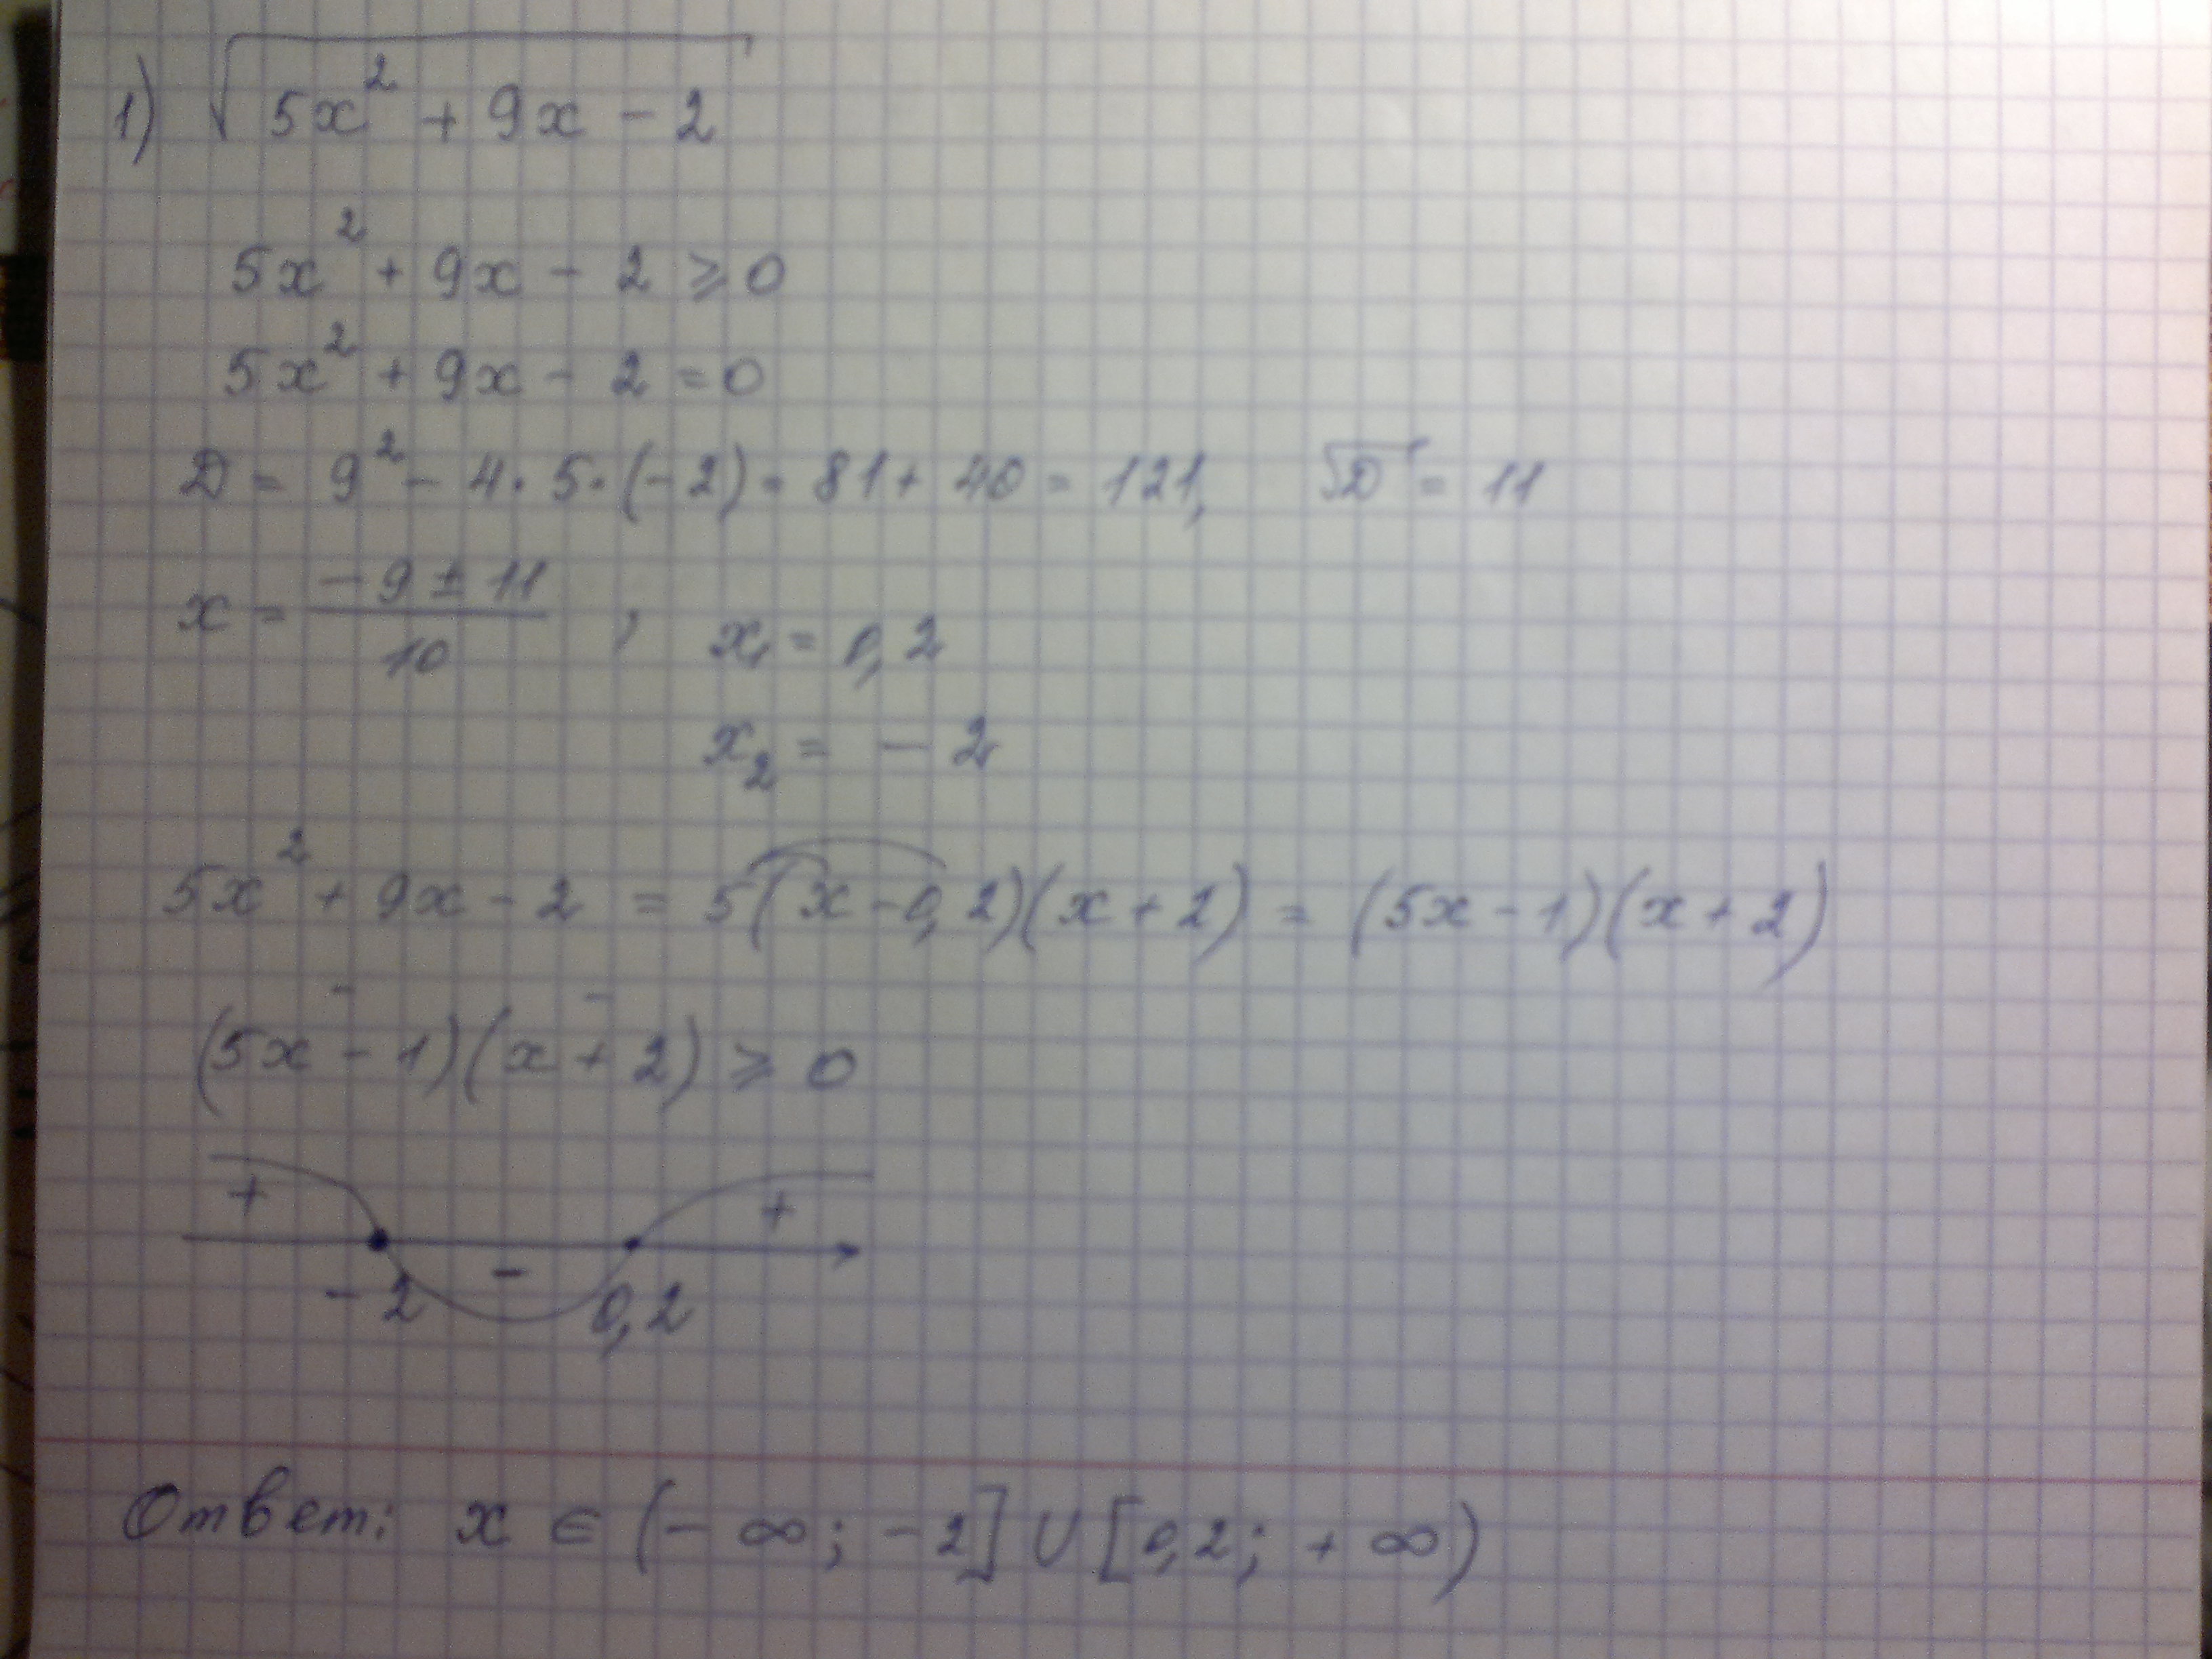 1) √(5x² + 9x - 2)
5x² + 9x - 2 ⩾ 0
5x² + 9x - 2 = 0
D = 9² - 4 · 5 · (-2) = 81 + 40 = 121, √D = 11
x = (-9 ± 11)/10 , x₁ = 0,2
x₂ = - 2
5x² + 9x - 2 = 5(x - 0,2)(x + 2) = (5x - 1)(x + 2)
- -
(5x - 1)(x + 2) ⩾ 0
+ - +
- 2 0,2
Ответ: x ∈ (- ∞ ; - 2] ∪ [0,2 ; + ∞)